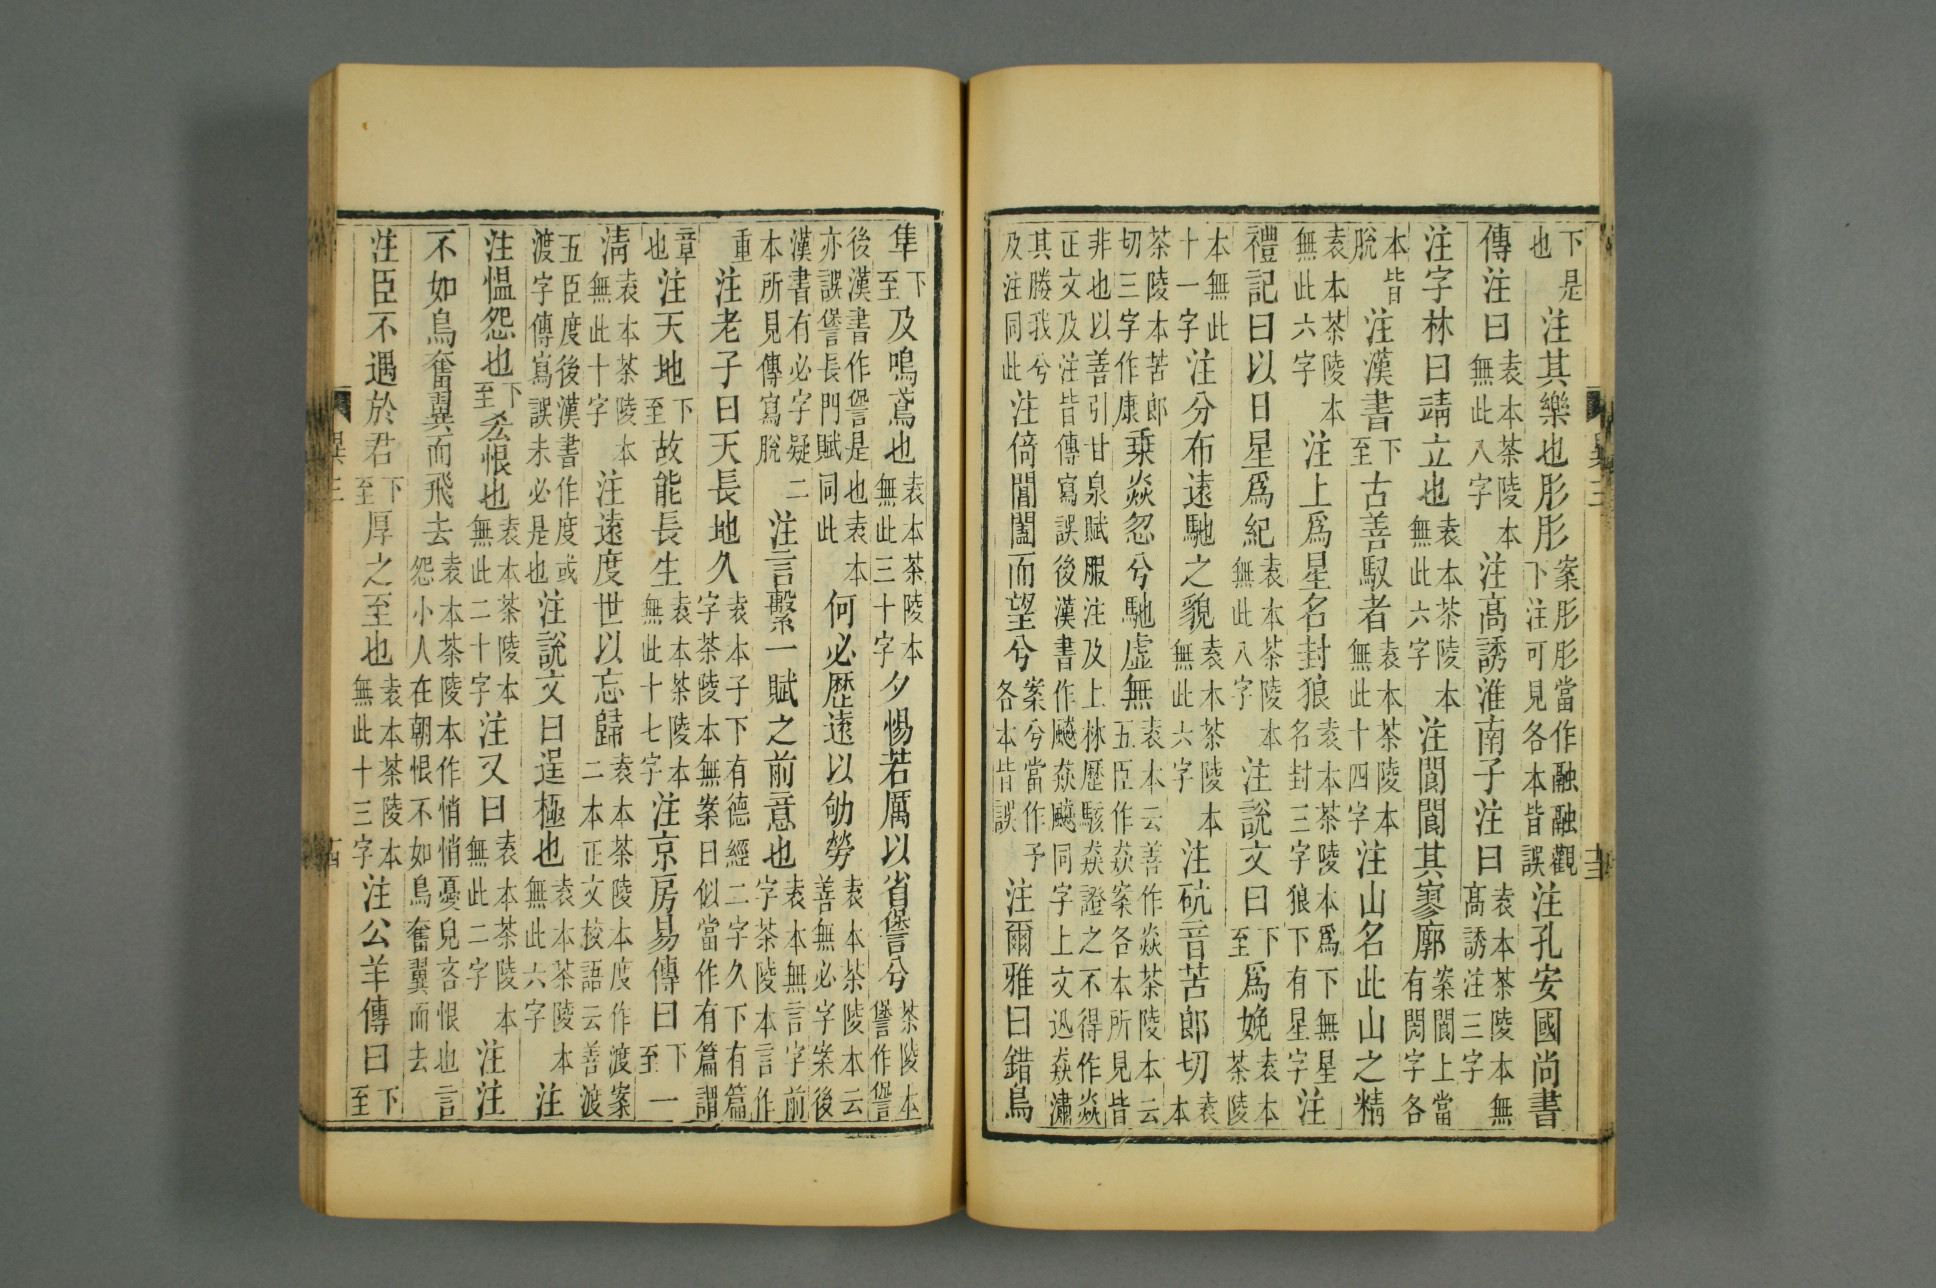 下是也注其樂也彤彤案彤彤當作融融觀下注可見各本皆誤注孔安國尚書
傳注曰袁本茶陵本無此八字注高誘淮南子注曰袁本茶陵本無高誘注三字
注字林曰竫立也袁本茶陵本無此六字注閬閬其寥廓案閬上當有閌字各
本皆脫注漢書下至古善馭者袁本茶陵本無此十四字注山名此山之精
袁本茶陵本無此六字注上爲星名封狼袁本茶陵本爲下無星名封三字狼下有星字注
禮記曰以日星爲紀袁本茶陵本無此八字注說文曰下至爲娩袁本茶陵
本無此十一字注分布遠馳之貌袁本茶陵本無此六字注砊音苦郎切袁本
茶陵本苦郎切三字作康乗焱忽兮馳虛無袁本云善作焱茶陵本云五臣作猋案各本所見皆
非也以善引甘泉賦服注及上林歷駭猋證之不得作焱正文及注皆傳寫誤後漢書作飈猋飈同字上文迅猋潚
其勝我兮及注同此注倚閶闔而望兮案兮當作予各本皆誤注爾雅曰錯鳥
異三
十三
隼下至及鳴鳶也袁本茶陵本無此三十字夕惕若厲以省諐兮茶陵本諐作諐
後漢書作諐是也袁本亦誤諐長門賦同此何必歷遠以劬勞袁本茶陵本云善無必字案後
漢書有必字疑二本所見傳寫脫注言繫一賦之前意也袁本無言字前字茶陵本言作
重注老子曰天長地久袁本子下有德經二字久下有篇字茶陵本無案曰似當作有篇謂
章也注天地下至故能長生袁本茶陵本無此十七字注京房易傳曰下至一
清袁本茶陵本無此十字注遠度世以忘歸袁本茶陵本度作渡案二本正文校語云善渡
五臣度後漢書作度或渡字傳寫誤未必是也注說文曰逞極也袁本茶陵本無此六字注
注慍怨也下至忿恨也袁本茶陵本無此二十字注又曰袁本茶陵本無此二字注注
不如鳥奮翼而飛去袁本茶陵本作悄悄憂皃吝恨也言怨小人在朝恨不如鳥奮翼而去
注臣不遇於君下至厚之至也袁本茶陵本無此十三字注公羊傳曰下至
異三
十四